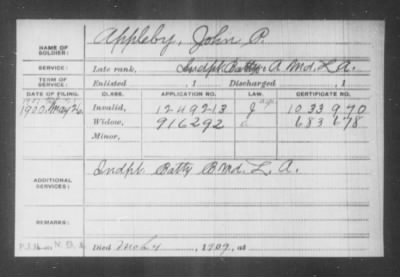 NAME OF SOLDIER: Appleby, John P.
SERVICE: Late rank, Indpt Batty. A Md. L. A.
TERM OF SERVICE: Enlisted , 1 Discharged , 1
DATE OF FILING. CLASS. APPLICATION NO. LAW. CERTIFICATE NO.
1900 May 26 Invalid, 1249213 1033970
Widow, 916292 683678
Minor,
ADDITIONAL SERVICES: Indpt Batty B Md. L. A.
REMARKS:
Died , 1909, at